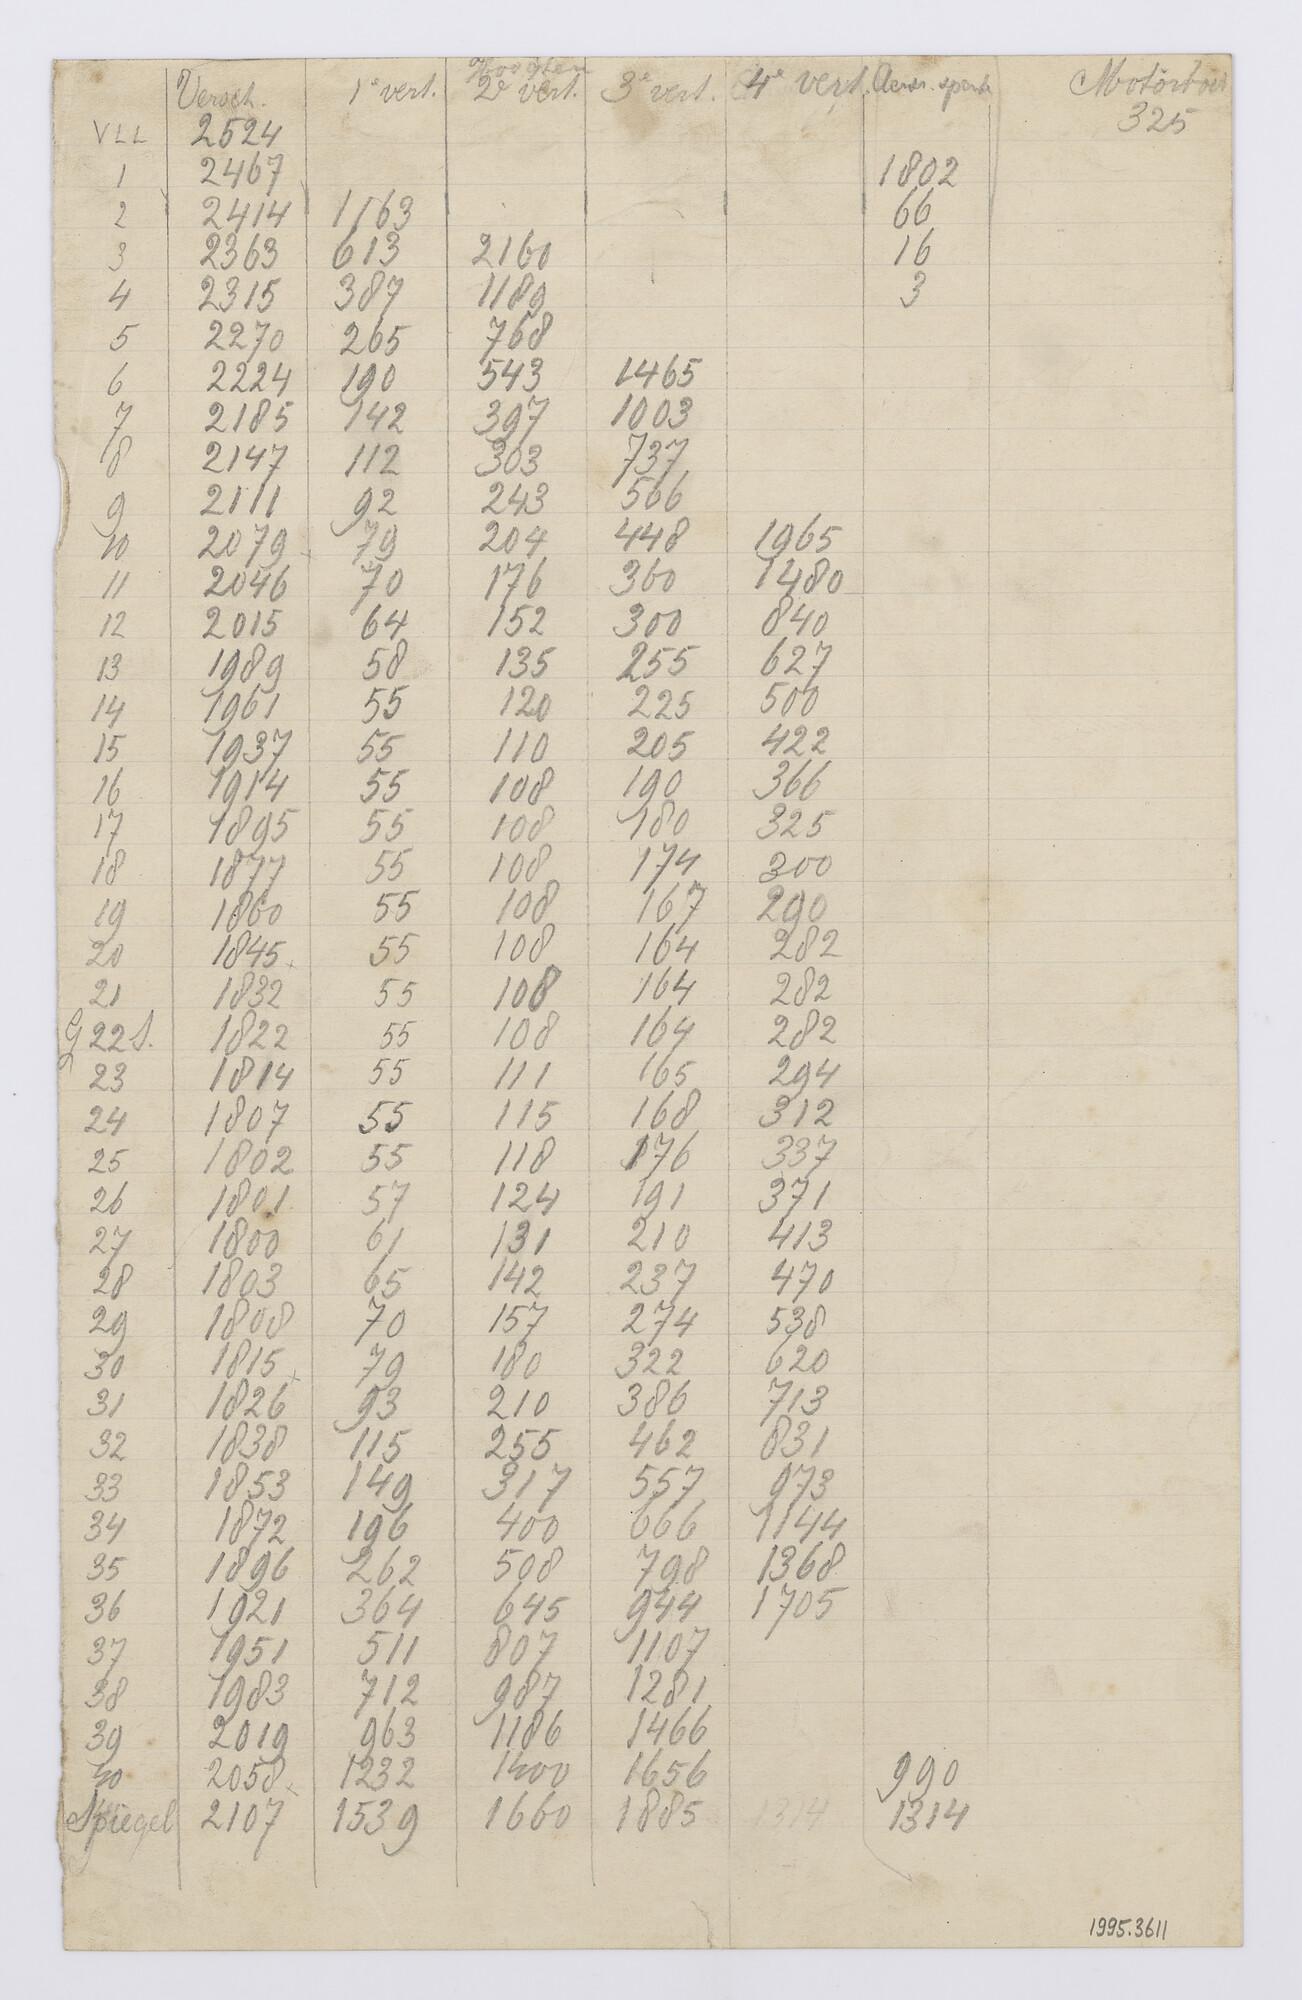 Hoogten
Versch. 1e vert. 2e vert. 3e vert. 4e vert. Motorboot
325
VLL 2524
1 2467 1802
2 2414 1163 66
3 2363 613 2160 16
4 2315 387 1189 3
5 2270 265 768
6 2224 190 543 1465
7 2185 142 397 1003
8 2147 112 303 737
9 2111 92 243 566
10 2079 79 204 448 1965
11 2046 70 176 360 1480
12 2015 64 152 300 840
13 1989 58 135 255 627
14 1961 55 120 225 500
15 1937 55 110 205 422
16 1914 55 108 190 366
17 1895 55 108 180 325
18 1877 55 108 174 300
19 1860 55 108 167 290
20 1845 55 108 164 282
21 1832 55 108 164 282
G 22 S. 1822 55 108 164 282
23 1814 55 111 165 294
24 1807 55 115 168 312
25 1802 55 118 176 337
26 1801 57 124 191 371
27 1800 61 131 210 413
28 1803 65 142 237 470
29 1808 70 157 274 538
30 1815 79 180 322 620
31 1826 93 210 386 713
32 1838 115 255 462 831
33 1853 149 317 557 973
34 1872 196 400 666 1144
35 1896 262 508 798 1368
36 1921 364 645 944 1705
37 1951 511 807 1107
38 1983 712 987 1281
39 2019 963 1186 1466
40 2058 1232 1400 1656 990
Spiegel 2107 1539 1660 1885 1314 1314
1995.3611